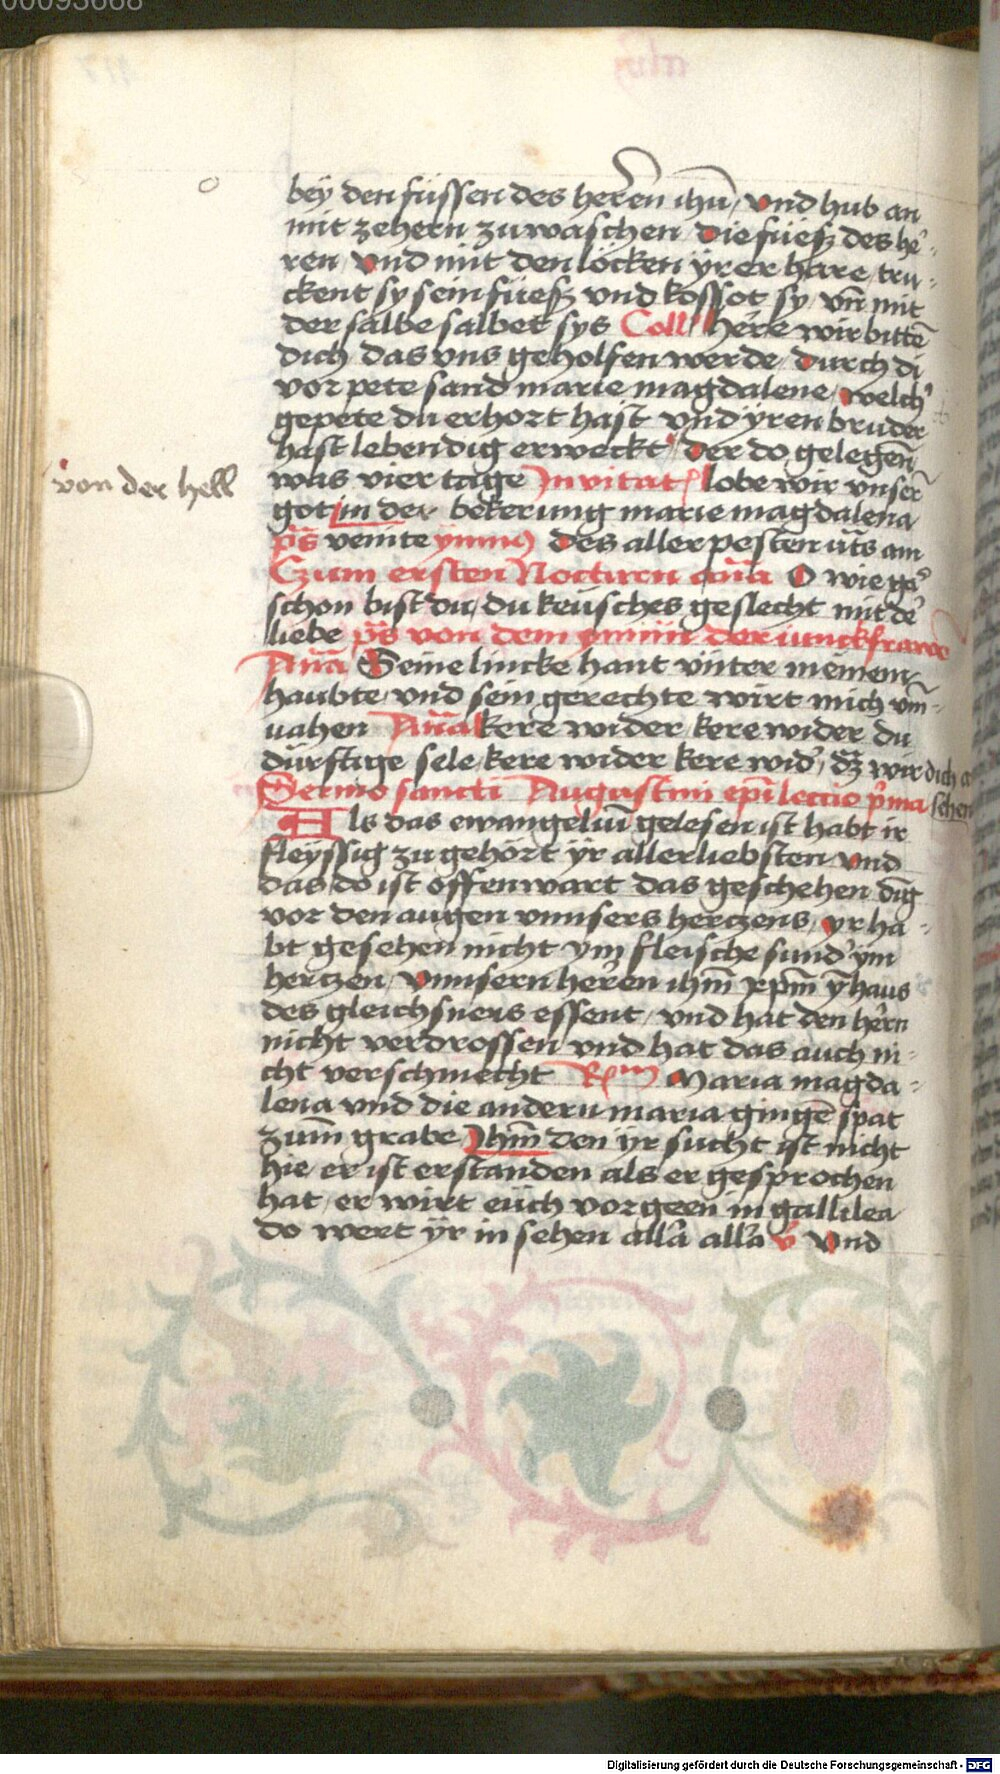 00093668
bey den füssen des herren ihū / vnd hub an
mit zehern zu waschen / die füeß des he-
ren / vnd mit den löcken yrer hare / tru-
ckent sy sein füeß vnd kosset sy / vn̄ mit
der salbe salbet sys Coll here wir bittē
dich das vns geholfen werde / durch di
vor pete sand marie magdalene / welch'
gepete du erhort hast vnd yren bruder
hast lebendig erweckt / der do gelegen
von der hell
was vier tage Invitat lobe wir vnserē
got in der bekerung marie magdalena
ps̄ venite ymnus des aller pesten
Czum ersten Nocturn an̄a O wie gar
schon bist du / du keüsches geslecht mit d'
liebe ps̄ von dem gmiin der iunckfrawē
An̄a Seine lincke hant vnter meinem
haubte / vnd sein gerechte wirt mich vm̄-
uahen An̄a kere wider / kere wider du
dürftige sele / kere wider kere wid' / dz wir dich a
schen
Sermo sancti Augustini ep̄i lectio p'ma
Als das ewangeliu͞ gelesen ist habt ir
fleyssig zu gehört yr allerliebsten / vnd
das do ist offenwart das geschehen dīg
vor den augen vnnsers hertzens / yr ha-
bt gesehen nicht ym fleische sund' ym
hertzen / vnnsern heren ihm̄ xp̄m ȳ haus
des gleichsners essent / vnd hat den hern
nicht verdrossen vnd hat das auch ni-
cht verschmecht R Maria magda-
lena vnd die andern maria gingē spat
zum grabe / Ihm̄ den yr sucht ist nicht
hie / er ist erstanden als er gesprochen
hat / er wirt eüch vorgeen in gallilea
do wert yr in sehen all'a all'a v' Vnd
Digitalisierung gefördert durch die Deutsche Forschungsgemeinschaft - DFG